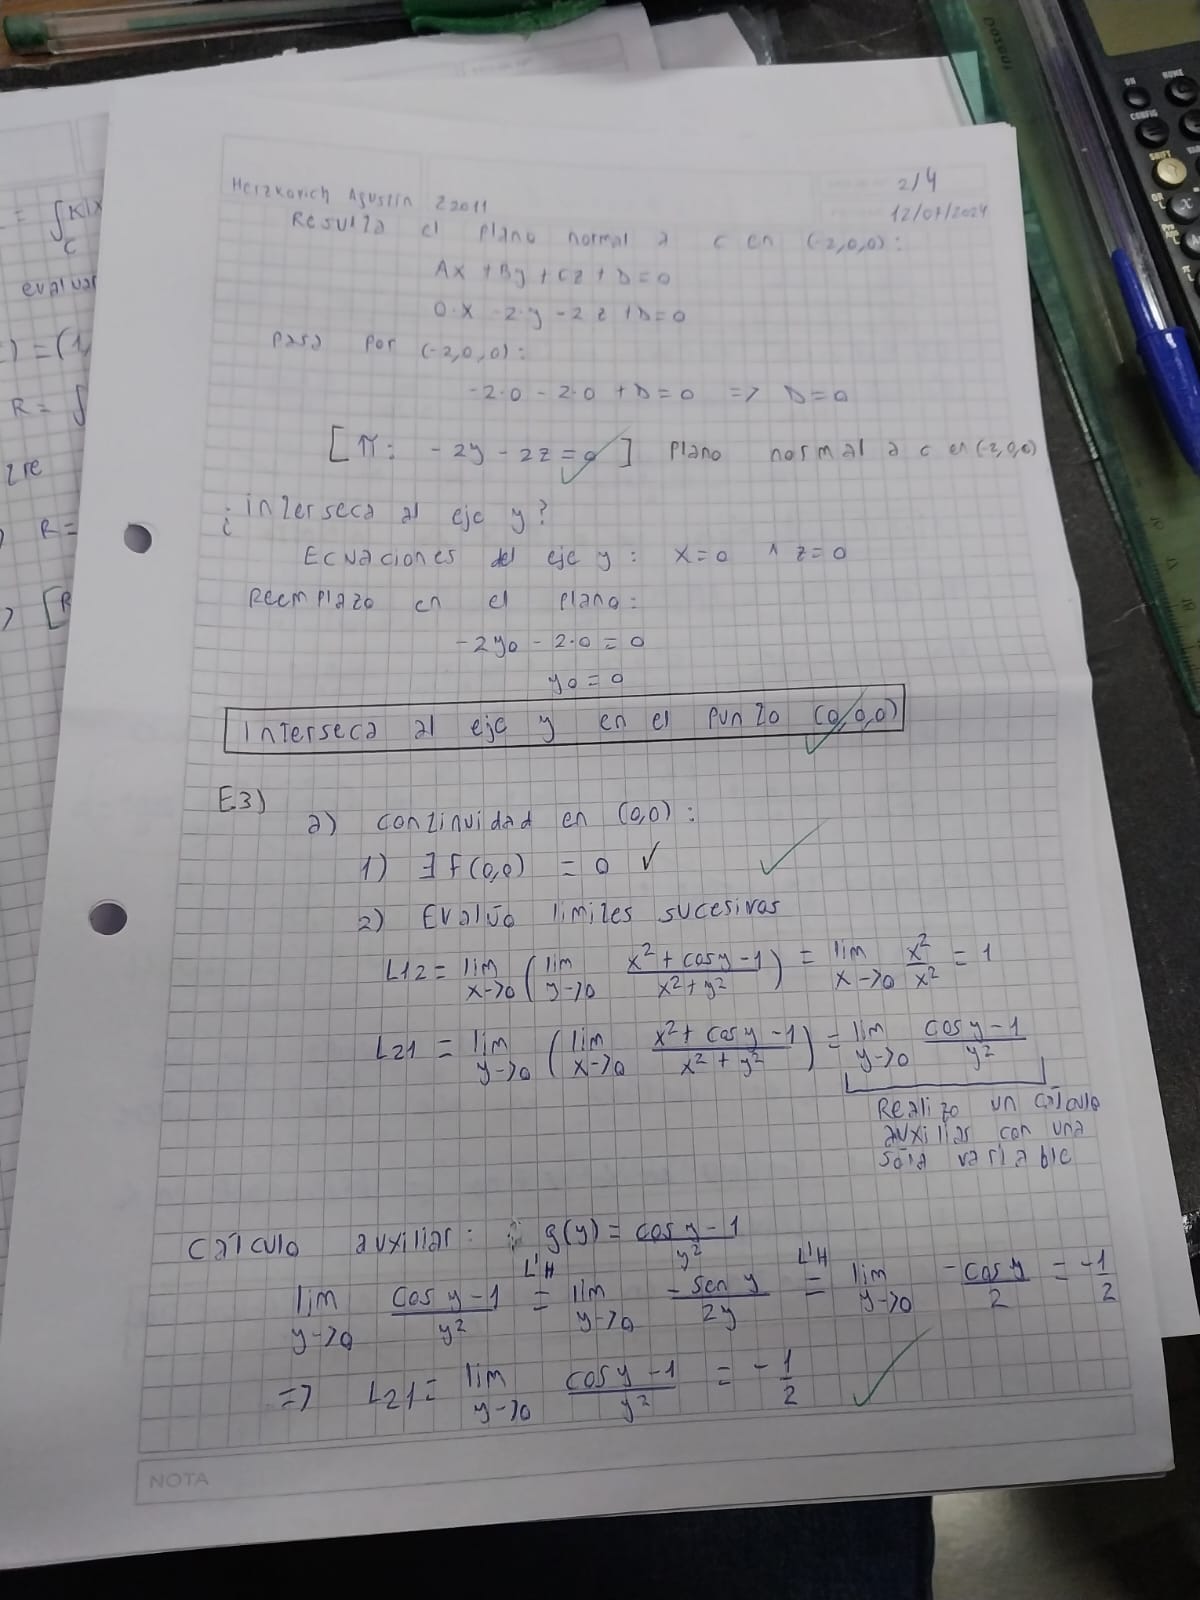 2/4
Herzkovich Agustín Z2011
12/07/2024
Resulta el plano normal a C en (-2,0,0):
Ax + By + Cz + D = 0
0·x - 2·y - 2z + D = 0
Pasa por (-2,0,0):
-2·0 - 2·0 + D = 0 => D = 0
[π: -2y - 2z = 0] Plano normal a C en (-2,0,0)
¿interseca al eje y?
Ecuaciones del eje y: x=0 ∧ z=0
Reemplazo en el plano:
-2y0 - 2·0 = 0
y0 = 0
Interseca al eje y en el punto (0,0,0)
E3)
a) continuidad en (0,0):
1) ∃ f(0,0) = 0 ✓
2) Evalúo limites sucesivos
L12 = lim x->0 (lim y->0 (x² + cos y - 1)/(x² + y²)) = lim x->0 x²/x² = 1
L21 = lim y->0 (lim x->0 (x² + cos y - 1)/(x² + y²)) = lim y->0 (cos y - 1)/y²
Realizo un cálculo
auxiliar con una
sola variable
Cálculo auxiliar: g(y) = (cos y - 1)/y²
lim y->0 (cos y - 1)/y² =L'H lim y->0 -sen y/2y =L'H lim y->0 -cos y/2 = -1/2
=> L21 = lim y->0 (cos y - 1)/y² = -1/2
NOTA
= ∫C K(x
evaluar
) = (1,
R = ∫
R =
[R
ON
HOME
CONFIG
SHIFT